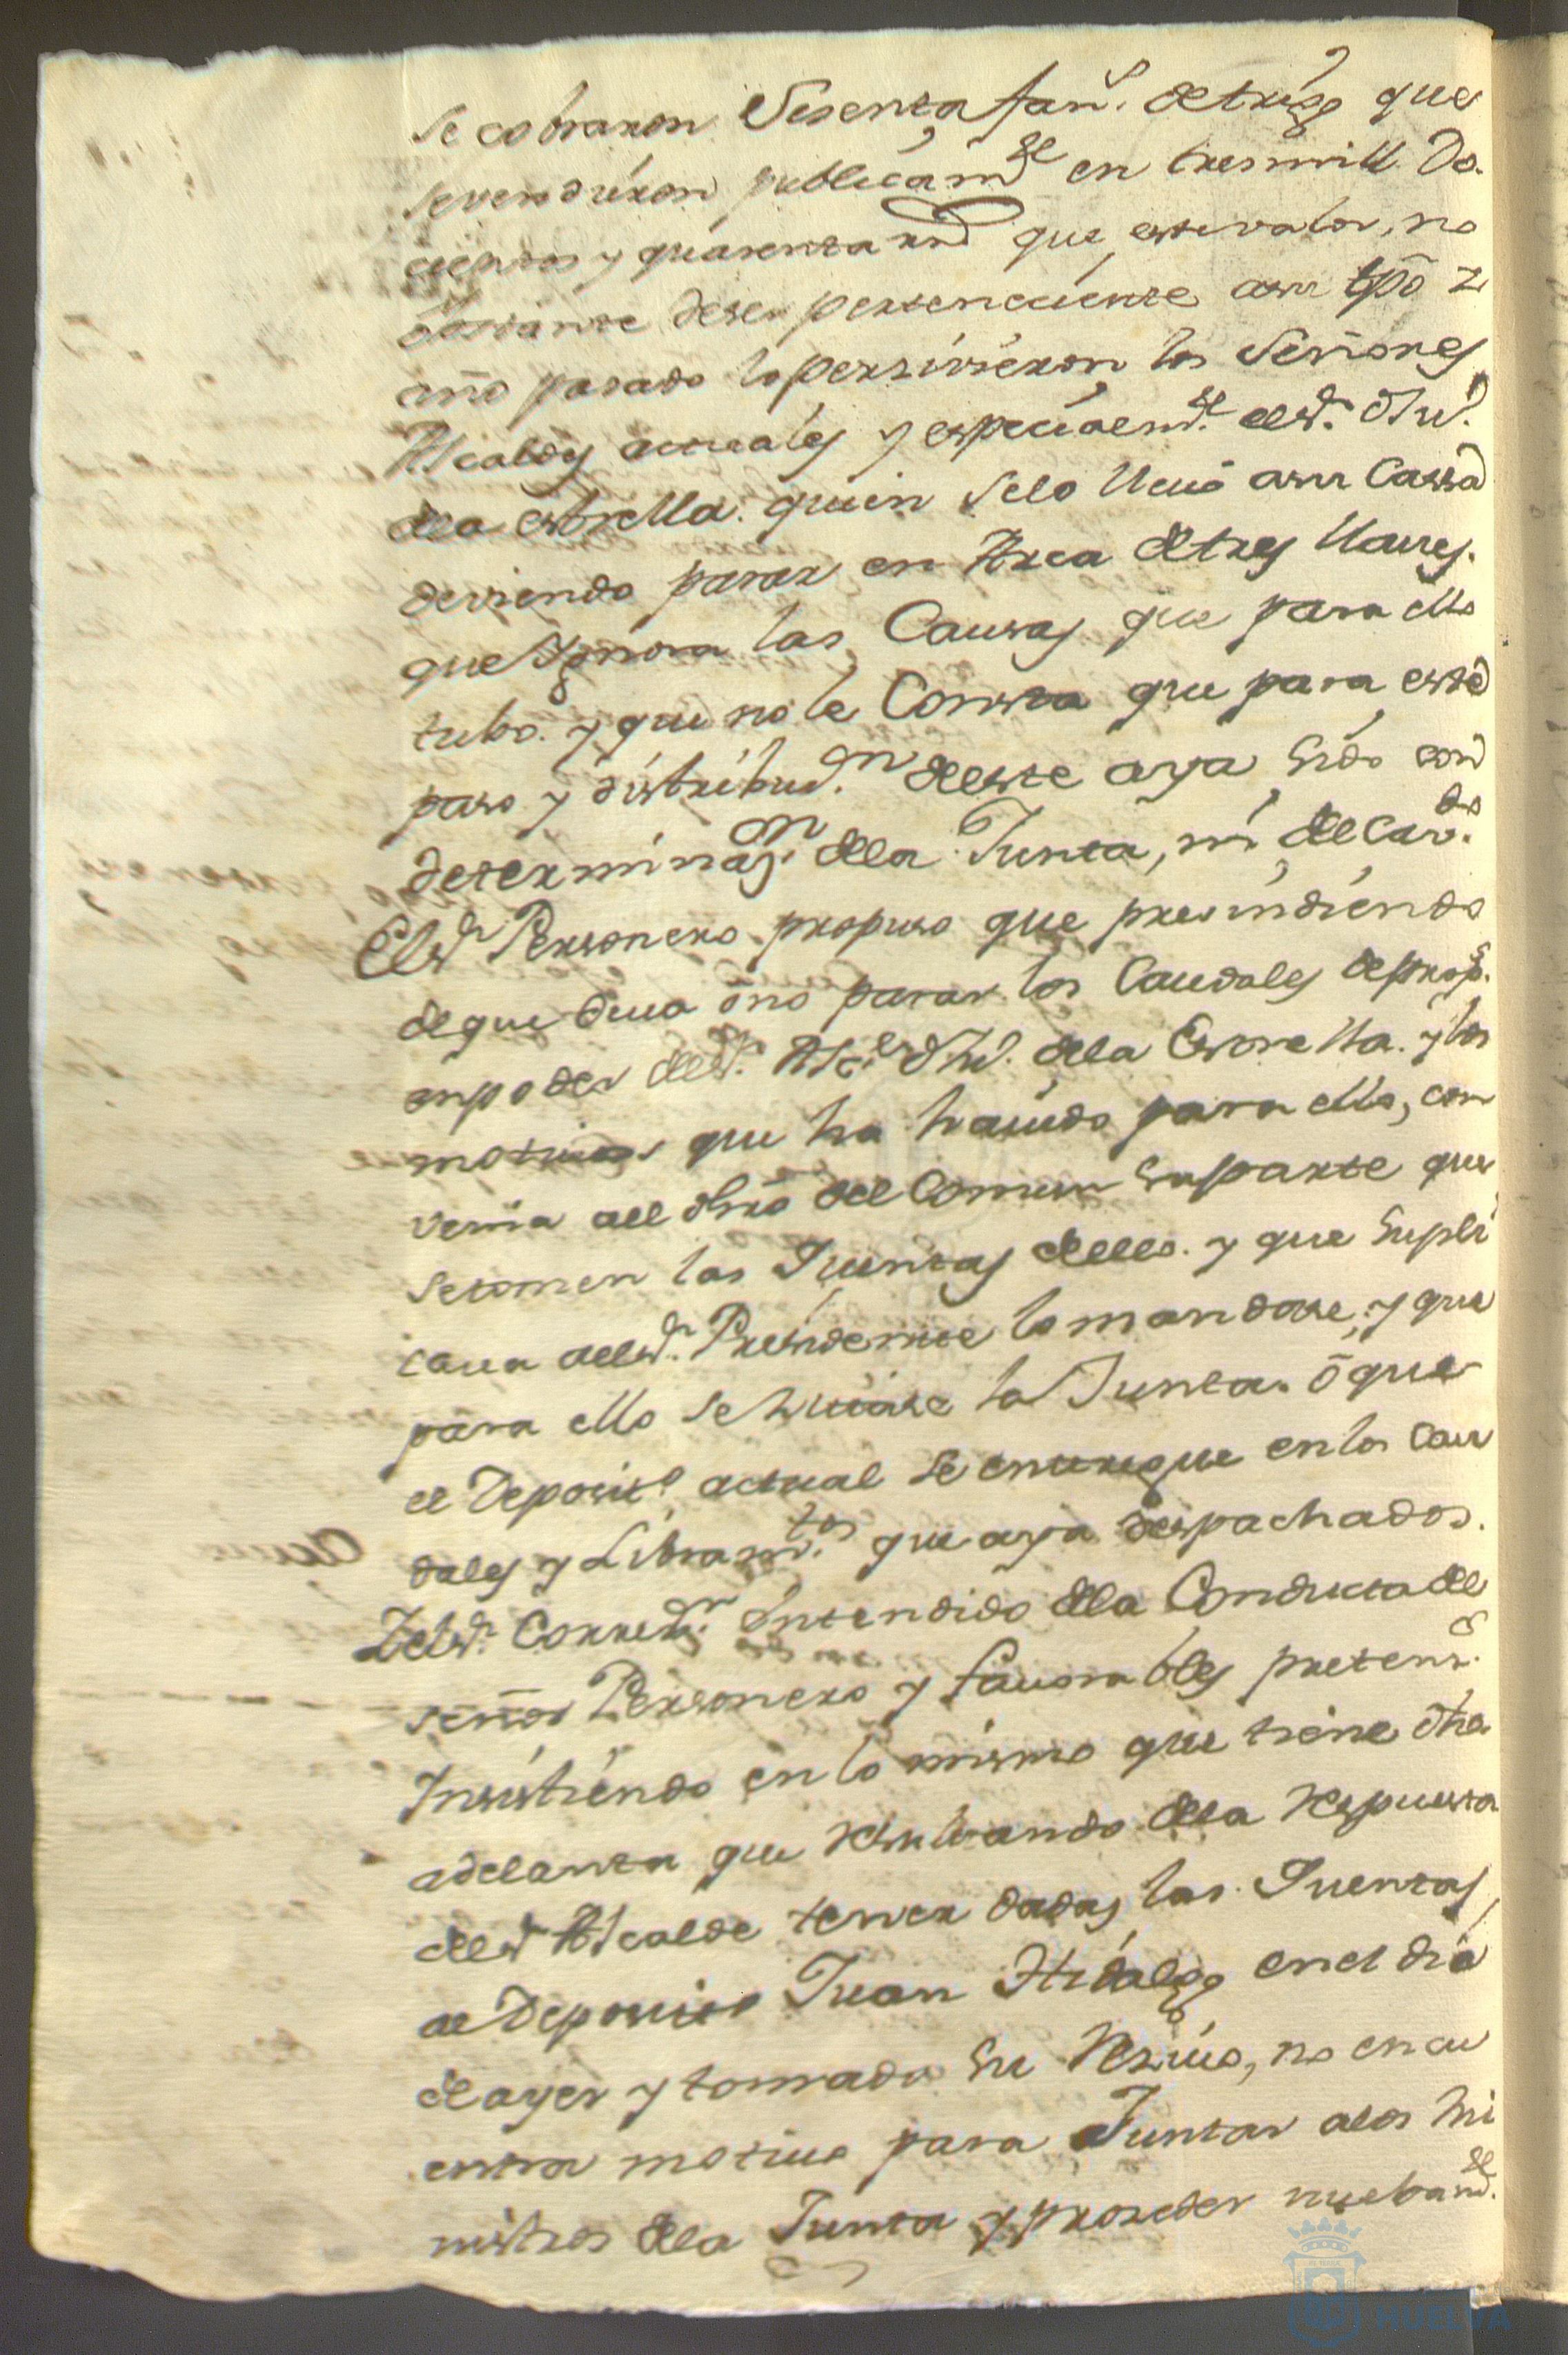 se cobraron Sesenta fan.s de trigo que
se vendieron publicam.te en tres mill Do
cientos y quarenta r.s que este valor, no
ôbstante deser perteneciente asu tpô y
año pasado lo perzivieron los Señores
Alcaldes actuales y especialm.te el s.r d.n Ju.
dela estrella. quien selo llevó asu Cassa
deviendo parar en Arca de tres llaves.
que Ygnora las Causas que para ello
tubo. y que no le Consta que para este
paso y distribuz.on deeste aya sido con
determinaz.on dela Junta, ni del Cav.do
El s.r Personero propuso que presindiendo
de que deva ô no parar los Caudales de prop.s
en poder del s.r Alc.e d.n Ju. dela Estrella. y los
motivos que ha havido para ello, con
venia al dro del Comun su parte que
se tomen las Quentas dello. y que supli
cava al s.r Presidente lo mandase, y que
para ello se hiciese la Junta. ô que
el Deposit.o actual se entregue en los Cau
dales y Libram.tos que aya despachados.
Y el s.r Correx.r entendido dela Conducta del
señor Personero y favorables pretens.s
Insistiendo en lo mismo que tiene dho
adelanta que resultando dela respuesta
del s.r Alcalde tener dadas las Quentas
al Deposit.o Juan Hidalgo en el dia
de ayer y tomado su Rezivo, no encu
entra motivo para Juntar alos Mi
nistros dela Junta y proseder nuebam.te
HUELVA